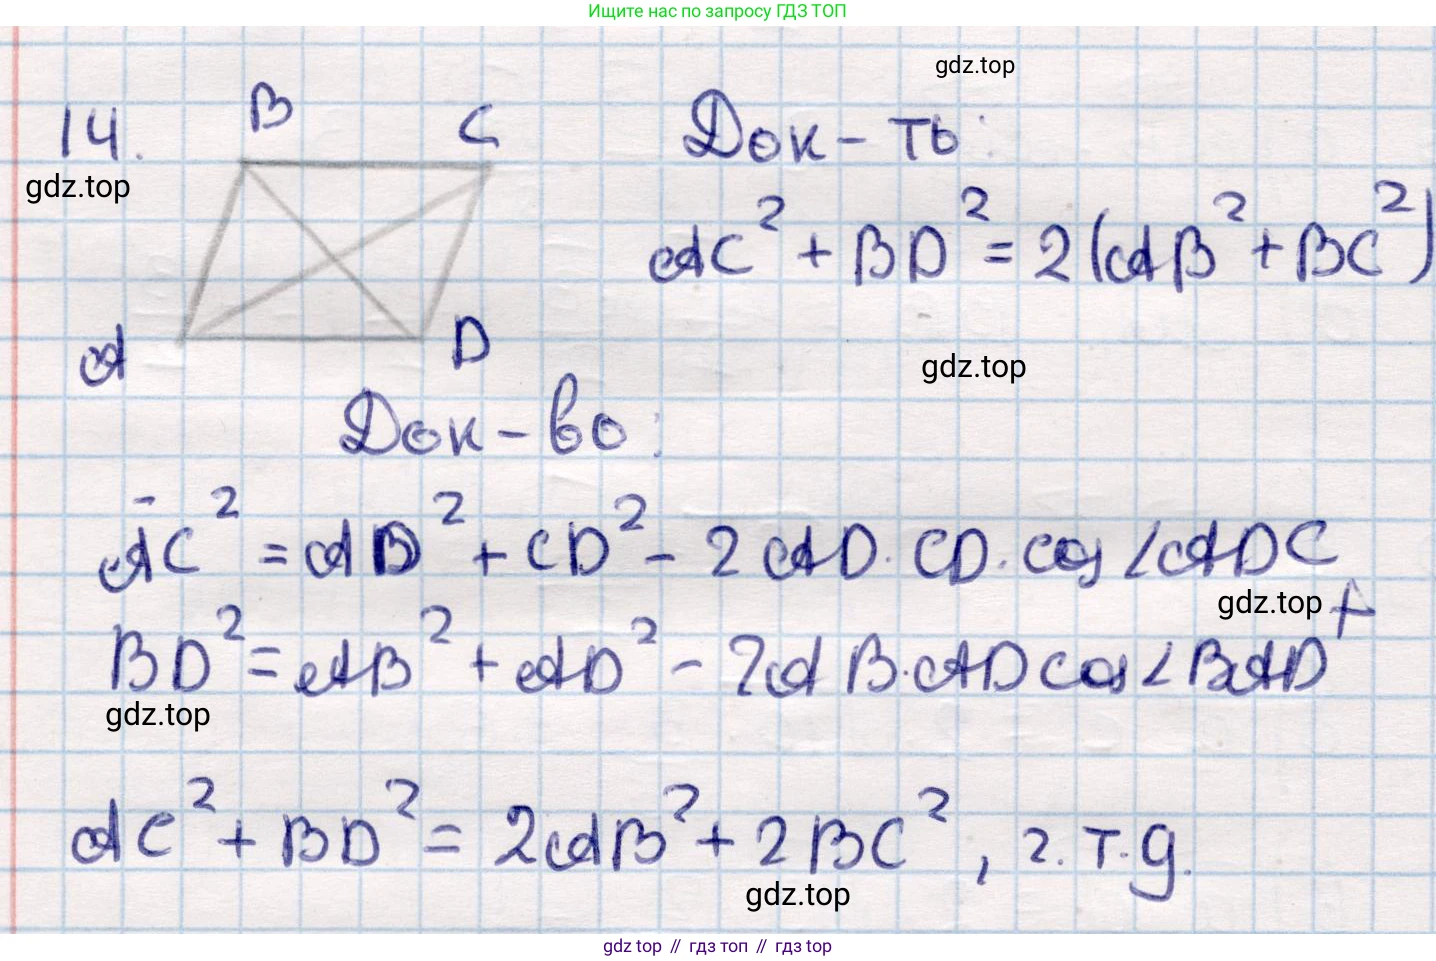 Ищите нас по запросу ГДЗ ТОП
gdz.top
14.
B
C
Док-ть:
gdz.top
AC² + BD² = 2(AB² + BC²)
A
D
gdz.top
Док-во:
AC² = AD² + CD² - 2AD · CD · cos∠ADC
gdz.top +
BD² = AB² + AD² - 2AB · AD cos∠BAD
gdz.top
AC² + BD² = 2AB² + 2BC², г.т.д.
gdz.top
gdz top // гдз топ // gdz top